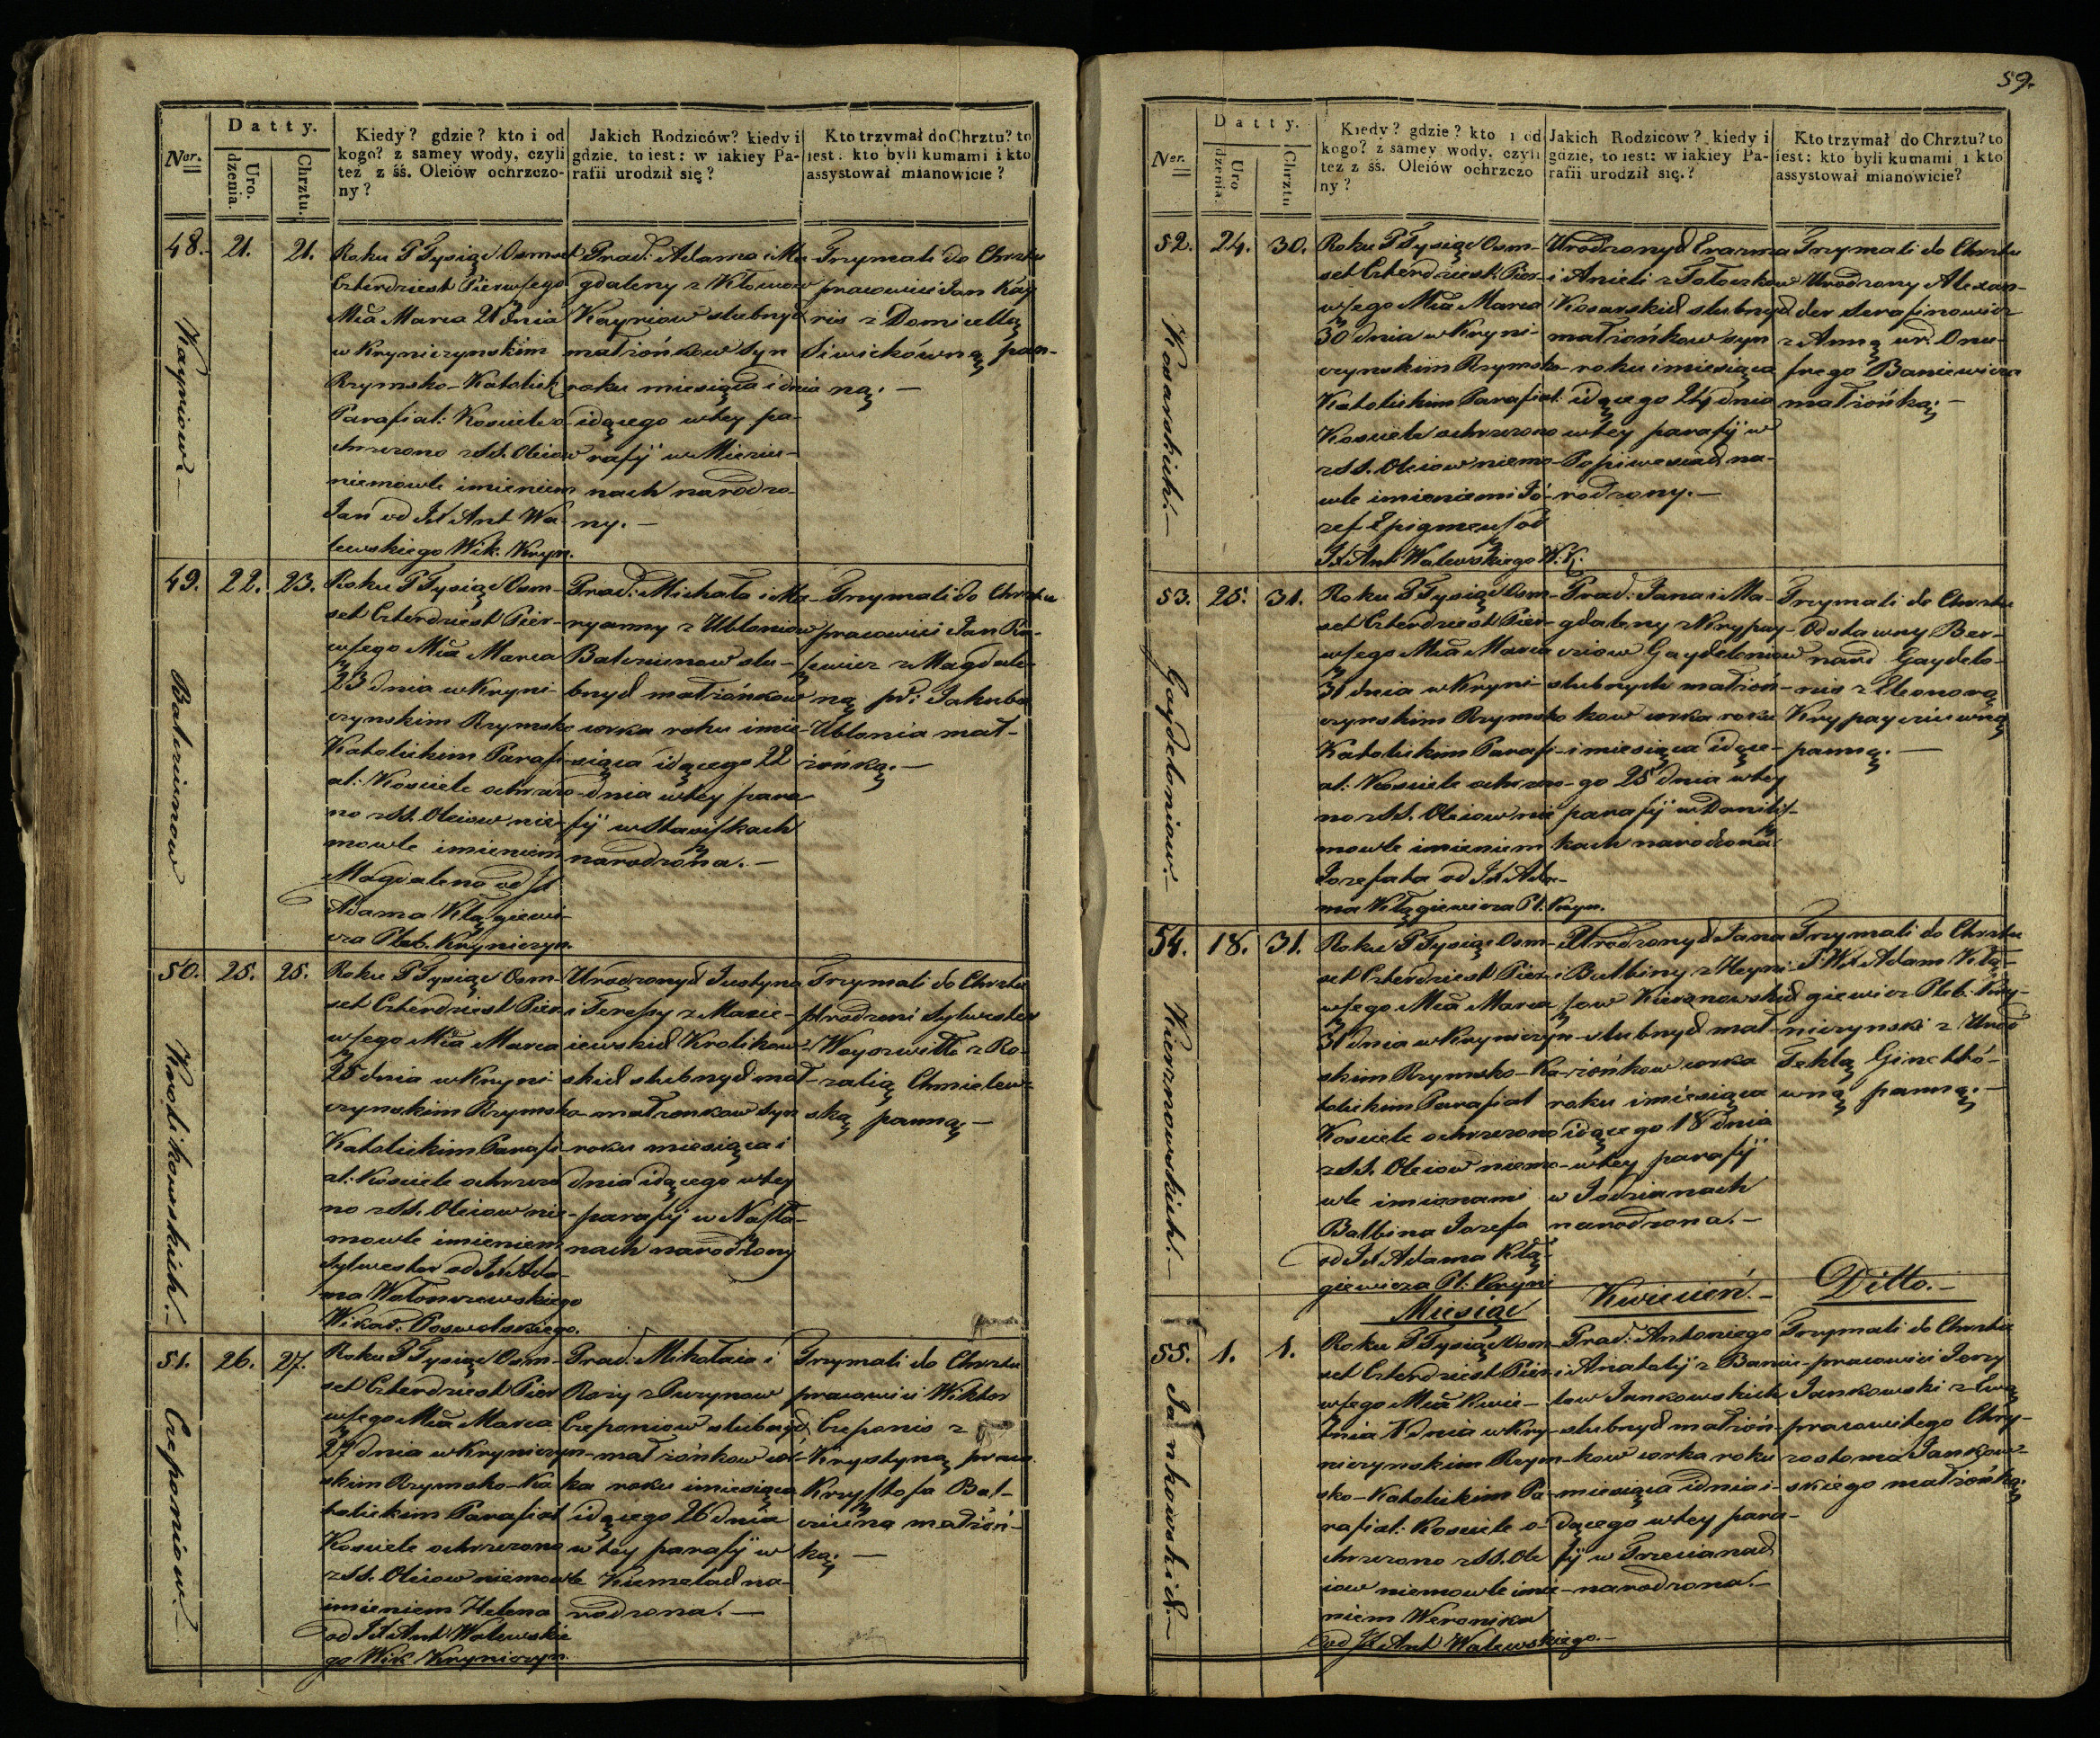 59.
Datty.
Ner.
Uro.
dzenia.
Chrztu.
Kiedy? gdzie? kto i od
kogo? z samey wody, czyli
tez z śś. Oleiów ochrzczo-
ny?
Jakich Rodziców? kiedy i
gdzie, to iest: w iakiey Pa-
rafii urodził się?
Kto trzymał do Chrztu? to
iest: kto byli kumami i kto
assystował mianowicie?
48.
Kayriow.
21.
21.
Roku P Tysiąc Osmset
Czterdziest Pierwszego
Mca Marca 21 dnia
w Kryniczynskim
Rzymsko-Katolick
Parafial: Kosciele o-
chrzczono z SS. Oleiow
niemowle imieniem
Jan od JX Ant Wa-
lewskiego Wik. Kryn.
Prad: Adama i Ma-
gdaleny z
Kayriow slubnych
małżonkow syn
roku miesiąca i dnia
idącego w tey pa-
rafij w
nach narodzo-
ny.-
Trzymali do Chrztu
pracowici Jan Kay
ris z Domicellą
pan-
ną.-
49.
22.
23.
Roku P Tysiąc Osm-
set Czterdziest Pier-
wszego Mca Marca
23 dnia w Kryni-
czynskim Rzymsko
Katolickim Parafi-
al: Kosciele ochrzczo-
no z SS. Oleiow nie-
mowle imieniem
Magdalena od JX
Adama Kłągiewi-
cza Pleb. Kryniczyn.
Prad: Michała i Ma-
ryanny z Ubloniow
slu-
bnych małżonkow
corka roku i mie-
siąca idącego 22
dnia w tey para
fij w Stawiskach
narodzona.-
Trzymali do Chrztu
pracowici Jan
z Magdale-
ną pr: Jakuba
Ublonia mał-
żonką.-
50.
Krolikowskich.-
25.
25.
Roku P Tysiąc Osm-
set Czterdziest Pier
wszego Mca Marca
25 dnia w Kryni-
czynskim Rzymsko-
Katolickim Parafi-
al: Kosciele ochrzczo
no z SS. Oleiow nie-
mowle imieniem
Sylwester od JX Ada-
ma
Wikar.
Urodzonych Justyna
i Teressy z Macie-
iewskich Krolikow-
skich slubnych mał-
małżonkow syn
roku miesiąca i
dnia idącego w tey
parafij w
nach narodzony
Trzymali do Chrztu
Urodzeni Sylwester
Woyszwiłło z Ro-
zalią Chmielew-
ską panną.-
51.
Czeponiow.-
26.
27.
Roku P Tysiąc Osm-
set Czterdziest Pier
wszego Mca Marca
27 dnia w Kryniczyn-
skim Rzymsko-Ka
tolickim Parafial
Kosciele ochrzczono
z SS. Oleiow niemowle
imieniem Helena
od JX Ant Walewskie
go Wik Kryniczyn.
Prad: Mikołaia i
Rozy z Puzynow
Czeponiow slubnych
małżonkow cor-
ka roku i miesiąca
idącego 26 dnia
w tey parafij w
na-
rodzona.-
Trzymali do Chrztu
pracowici Wiktor
Czeponis z
Krystyną praco
Krzysztofa Bal-
małżon-
ką.-
Datty.
Ner.
Uro
dzenia.
Chrztu
Kiedy? gdzie? kto i od
kogo? z samey wody, czyli
tez z śś. Oleiów ochrzczo
ny?
Jakich Rodzicow? kiedy i
gdzie, to iest: w iakiey Pa-
rafii urodził się.?
Kto trzymał do Chrztu? to
iest: kto byli kumami i kto
assystował mianowicie?
52.
Kosarskich.-
24.
30.
Roku P Tysiąc Osm-
set Czterdziest Pier-
wszego Mca Marca
30 dnia w Kryni-
czynskim Rzymsko-
Katolickim Parafial:
Kosciele ochrzczono
z SS. Oleiow niemo-
wle imieniemi Jó-
zef Epigmeusz od
JX Ant Walewskiego W. K.
Urodzonych Erazma
i Anieli z Tołoczkow
Kosarskich slubnych
małżonkow syn
roku i miesiąca
idącego 24 dnia
w tey parafij w
Popiwesiach na-
rodzony.-
Trzymali do Chrztu
Urodzony Alexan-
der Serafinowicz
z Anną ur. Onu-
frego Baniewicza
małżonką.-
53.
Gaydeloniow.-
25.
31.
Roku P Tysiąc Osm-
set Czterdziest Pier-
wszego Mca Marca
31 dnia w Kryni-
czynskim Rzymsko
Katolickim Parafi-
al: Kosciele ochrzczo-
no z SS. Oleiow nie
mowle imieniem
Jozefata od JX Ada-
ma Kłągiewicza Pl. Kryn.
Prad: Jana i Ma-
gdaleny z Krypay-
ciow Gaydeloniow
slubnych małżon-
kow corka roku
i miesiąca idące-
go 25 dnia w tey
parafij w Danilisz-
kach narodzona
Trzymali do Chrztu
Odstawny Ber-
nard Gaydelo-
nis z Eleonorą
Krypayciuwną
panną.-
54.
Kiersnowskich.-
18.
31.
Roku P Tysiąc Osm-
set Czterdziest Pier-
wszego Mca Marca
31 dnia w Krynicz​yn-
skim Rzymsko-Ka-
tolickim Parafial
Kosciele ochrzczono
z SS. Oleiow niemo-
wle imionami
Balbina Jozefa
od JX Adama Kłą-
giewicza Pl: Kryni
Urodzonych Jana
i Balbiny z Heyni-
szow Kiersnowskich
slubnych mał-
żonkow corka
roku i miesiąca
idącego 18 dnia
w tey parafij
w Jodzianach
narodzona.-
Trzymali do Chrztu
J.W.X Adam Kłą-
giewicz Pleb. Kry-
niczynski z Urod
Teklą Ginełtó-
wną panną.-
Miesiąc
Kwiecień.-
Ditto.-
55.
Jankowskich.-
1.
1.
Roku P Tysiąc Osm-
set Czterdziest Pier-
wszego Mca Kwie-
tnia 1 dnia w Kry-
niczynskim Rzym-
sko-Katolickim Pa-
rafial: Kosciele o-
chrzczono z SS. Ole
iow niemowle imie-
niem Weronika
od JX Ant Walewskiego.-
Prad: Antoniego
i Anatolij z Baniu-
low Jankowskich
slubnych małżon-
kow corka roku
miesiąca i dnia i-
dącego w tey para-
fij w Trzecianach
narodzona.-
Trzymali do Chrztu
pracowici Jerzy
Jankowski z Ewą
pracowitego Chry-
zostoma Jankow-
skiego małżonką.